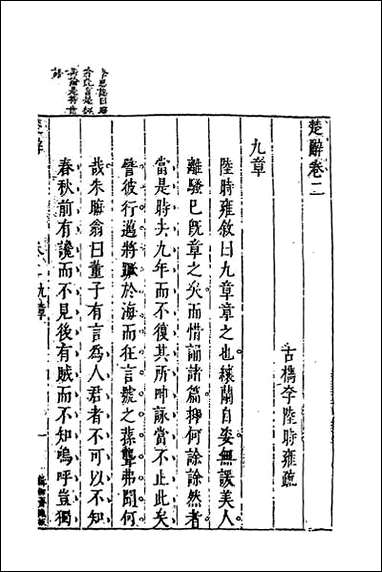 楚辭卷二
古檇李陸時雍疏
九章
陸時雍敘曰九章章之也纕蘭自姿無諼美人
離騷已既章之矣而惜誦諸篇抑何諗諗然者
當是時去九年而不復其所呻詠當不止此矣
譬彼行邁將蹶於海而在言號之褎聾弗聞何
哉朱晦翁曰董子有言為人君者不可以不知
春秋前有讒而不見後有賊而不知嗚呼豈獨